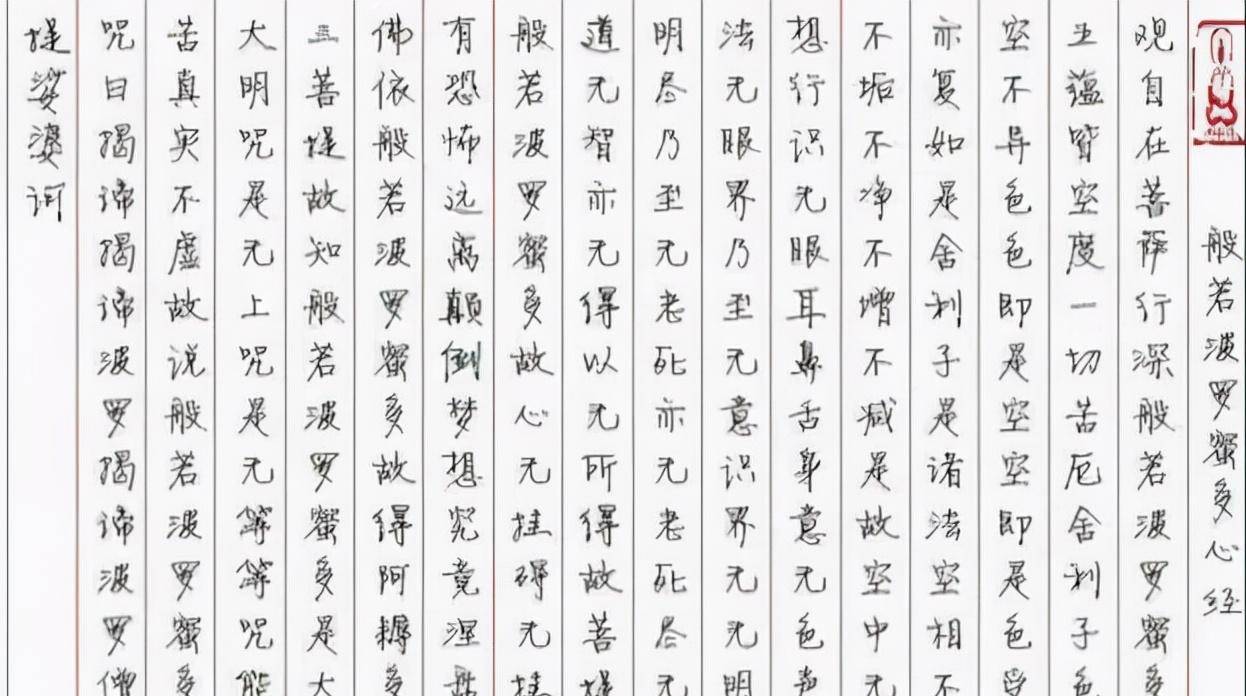 般若波罗蜜多心经
观自在菩萨行深般若波罗蜜多
五蕴皆空度一切苦厄舍利子色
空不异色色即是空空即是色受
亦复如是舍利子是诸法空相不
不垢不净不增不减是故空中无
想行识无眼耳鼻舌身意无色声
法无眼界乃至无意识界无无明
明尽乃至无老死亦无老死尽无
道无智亦无得以无所得故菩提
般若波罗蜜多故心无挂碍无挂
有恐怖远离颠倒梦想究竟涅盘
佛依般若波罗蜜多故得阿耨多
三菩提故知般若波罗蜜多是大
大明咒是无上咒是无等等咒能
苦真实不虚故说般若波罗蜜多
咒曰揭谛揭谛波罗揭谛波罗僧
提娑婆诃